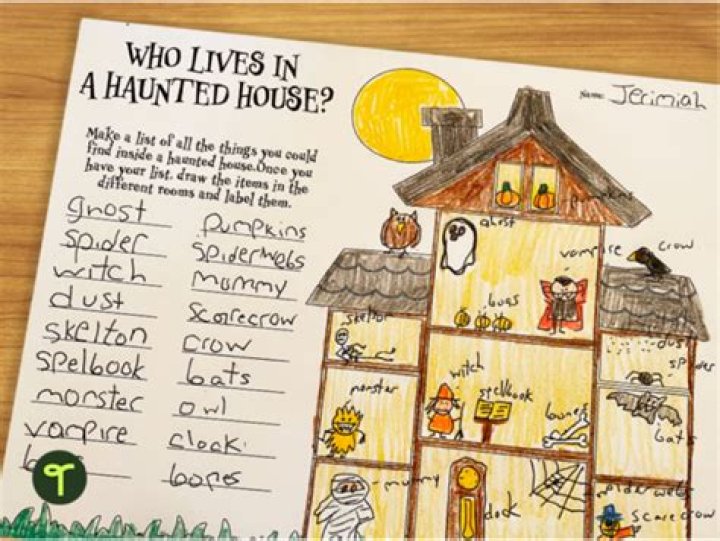 WHO LIVES IN
A HAUNTED HOUSE?
NAME: Jerimiah
Make a list of all the things you could
find inside a haunted house. Once you
have your list, draw the items in the
different rooms and label them.
ghost
spider
witch
dust
skelton
spelbook
monster
vampire
pumpkins
spiderwebs
mommy
scarecrow
crow
bats
owl
clock
bones
pumpkins
ghost
vampire
crow
bugs
skelton
dust
spider
witch
spelbook
monster
bones
bats
mummy
clock
spider webs
scarecrow